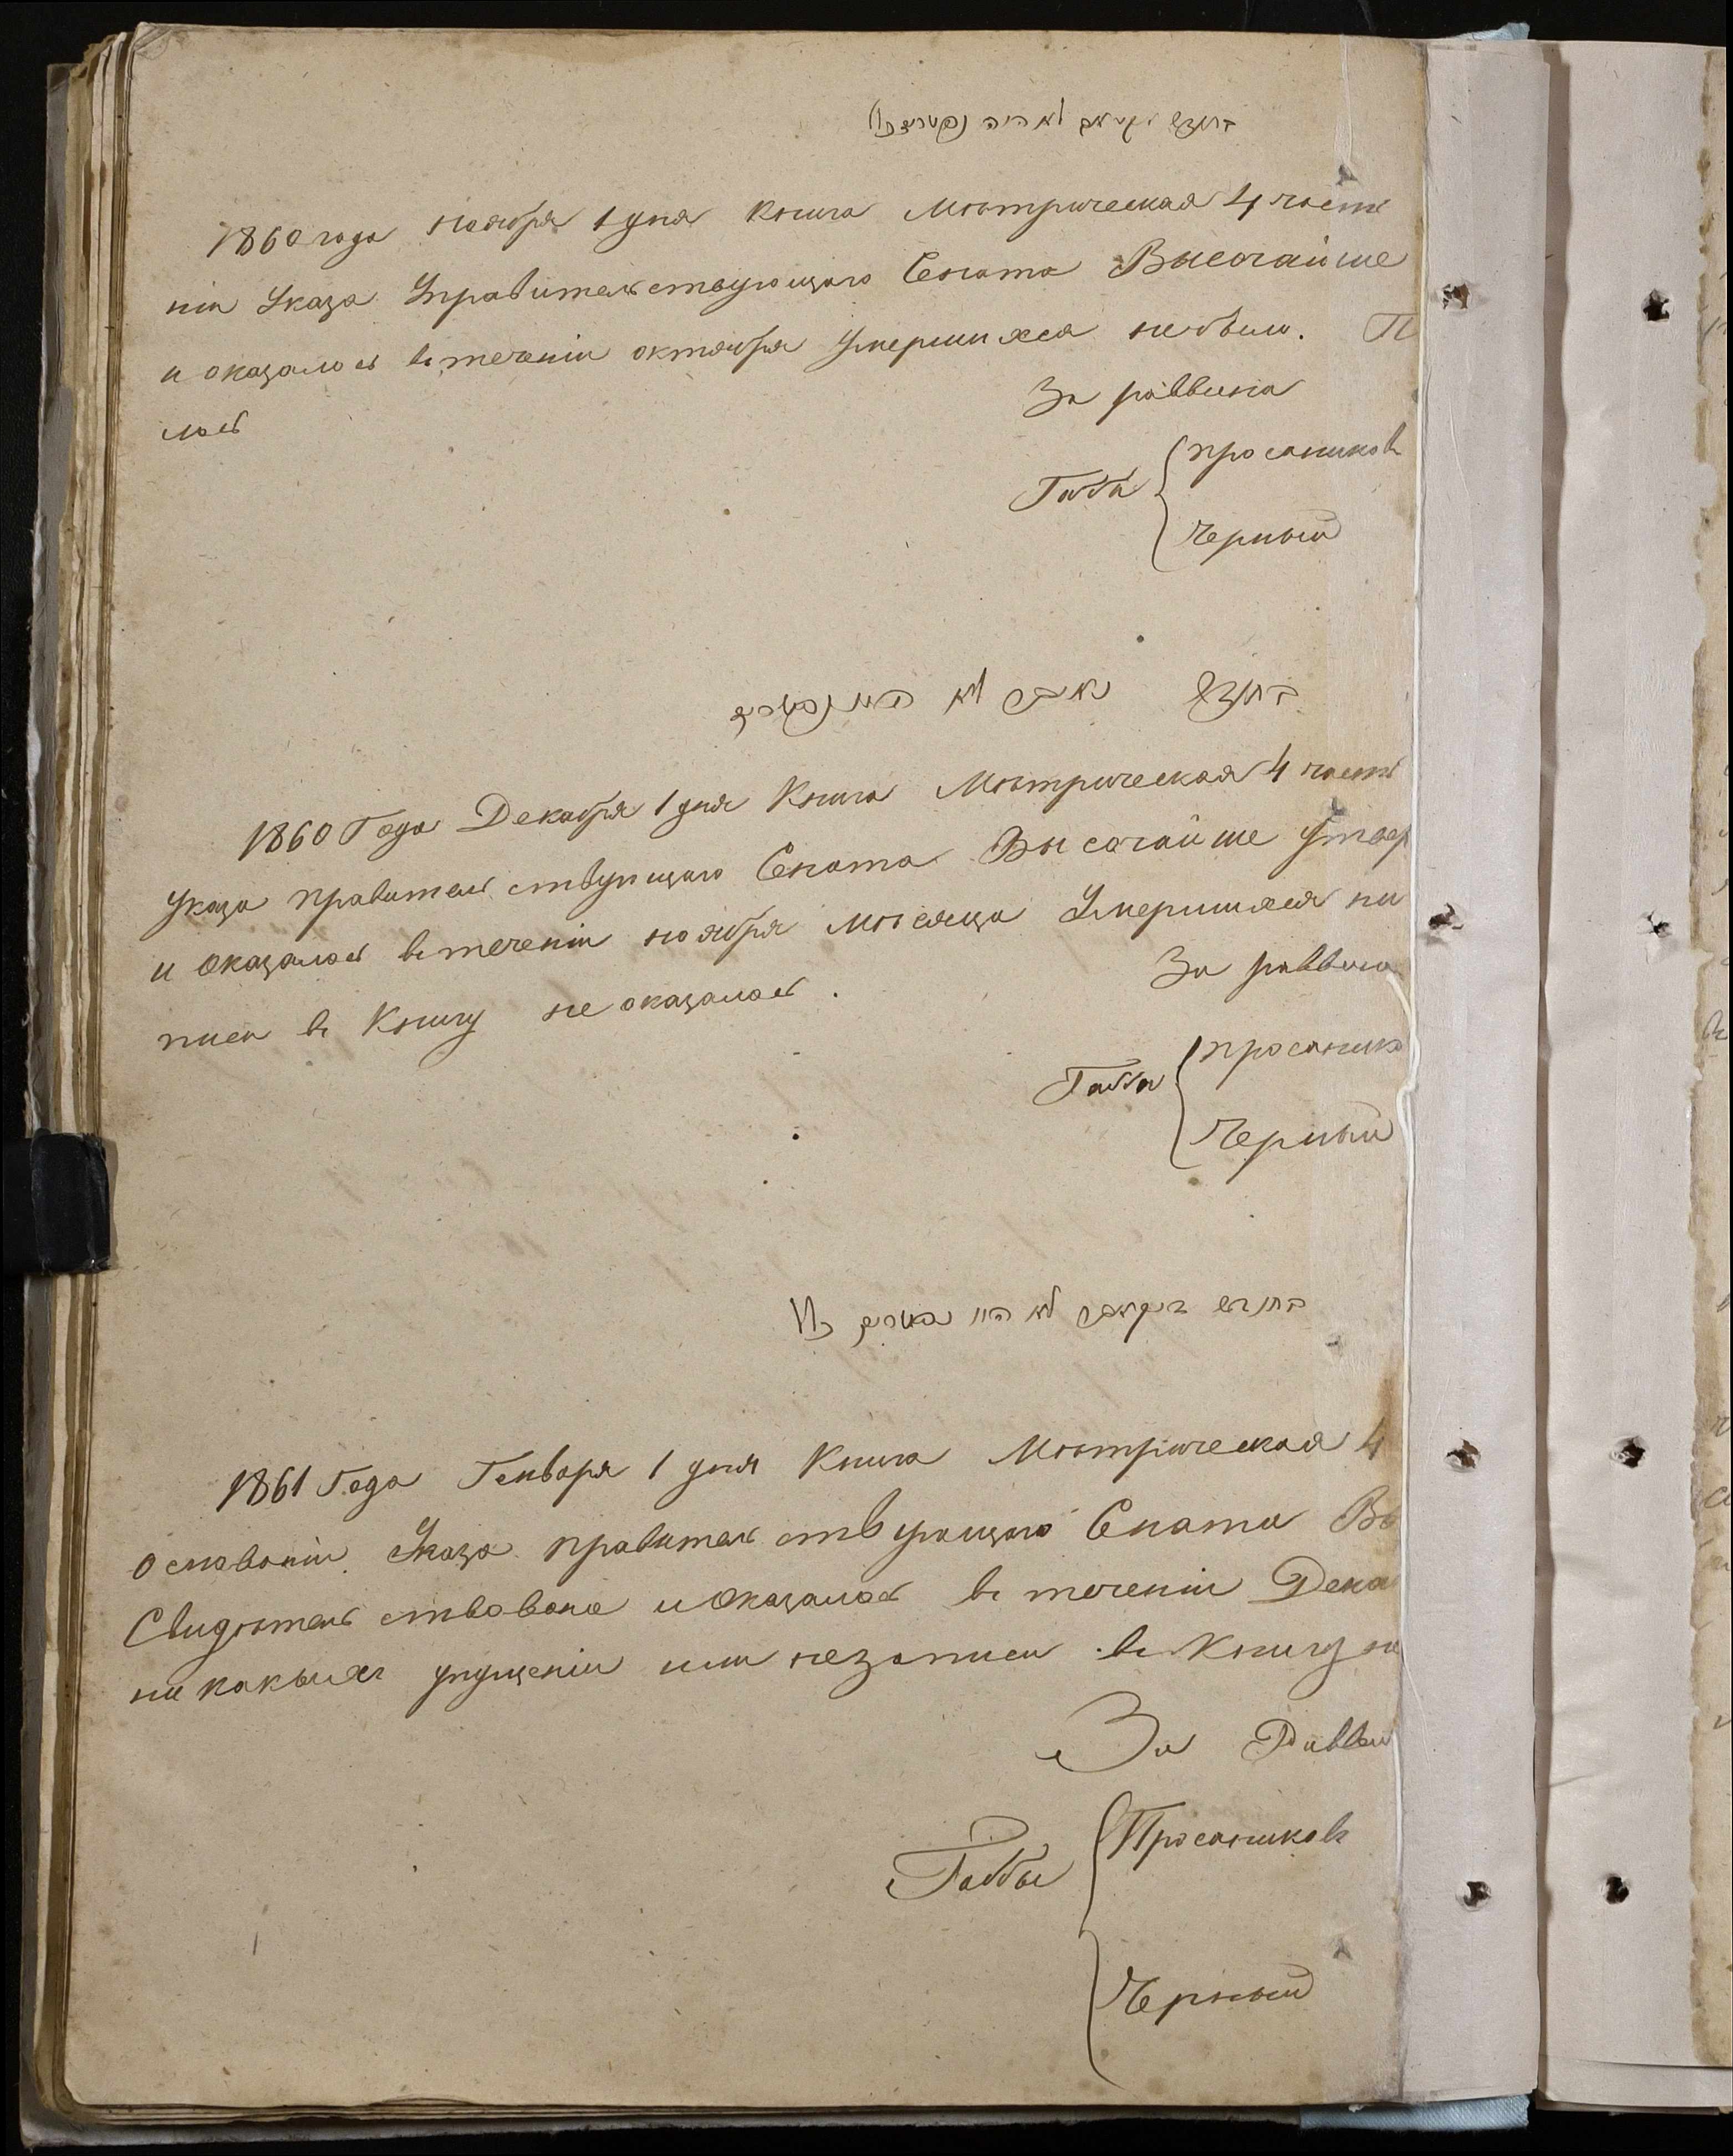 בחודש לא היה נפטרים
1860 года ноября 1 дня Книга Метрическая 4 часть
ніи Указа Управительствующаго Сената Высочайше
и оказалось в теченіи октября Умершихся небыло. П
лось
За раввина
Габа { просяников
Черный
בחודש נאבר לא היו נפטרים
1860 Года Декабря 1 дня Книга Мѣтрическая 4 часть
Указа правительствующаго Сената Высочайше Утвер
и Оказалось в теченіи ноября Мѣсяца Умершихся ни
писи в Книгу не оказалось.
За раввина
Габа { просянико
Черный
בחודש דעקאבר לא היו נפטרים
1861 Года Генваря 1 дня Книга Мѣтрическая 4
Основаніи Указа правительствующаго Сената Вы
Свидѣтельствована и Оказалось в теченіи Дека
ни какых упущеніи или незаписи в Книгу не
За Раввин
Габбы { Просяников
Черный